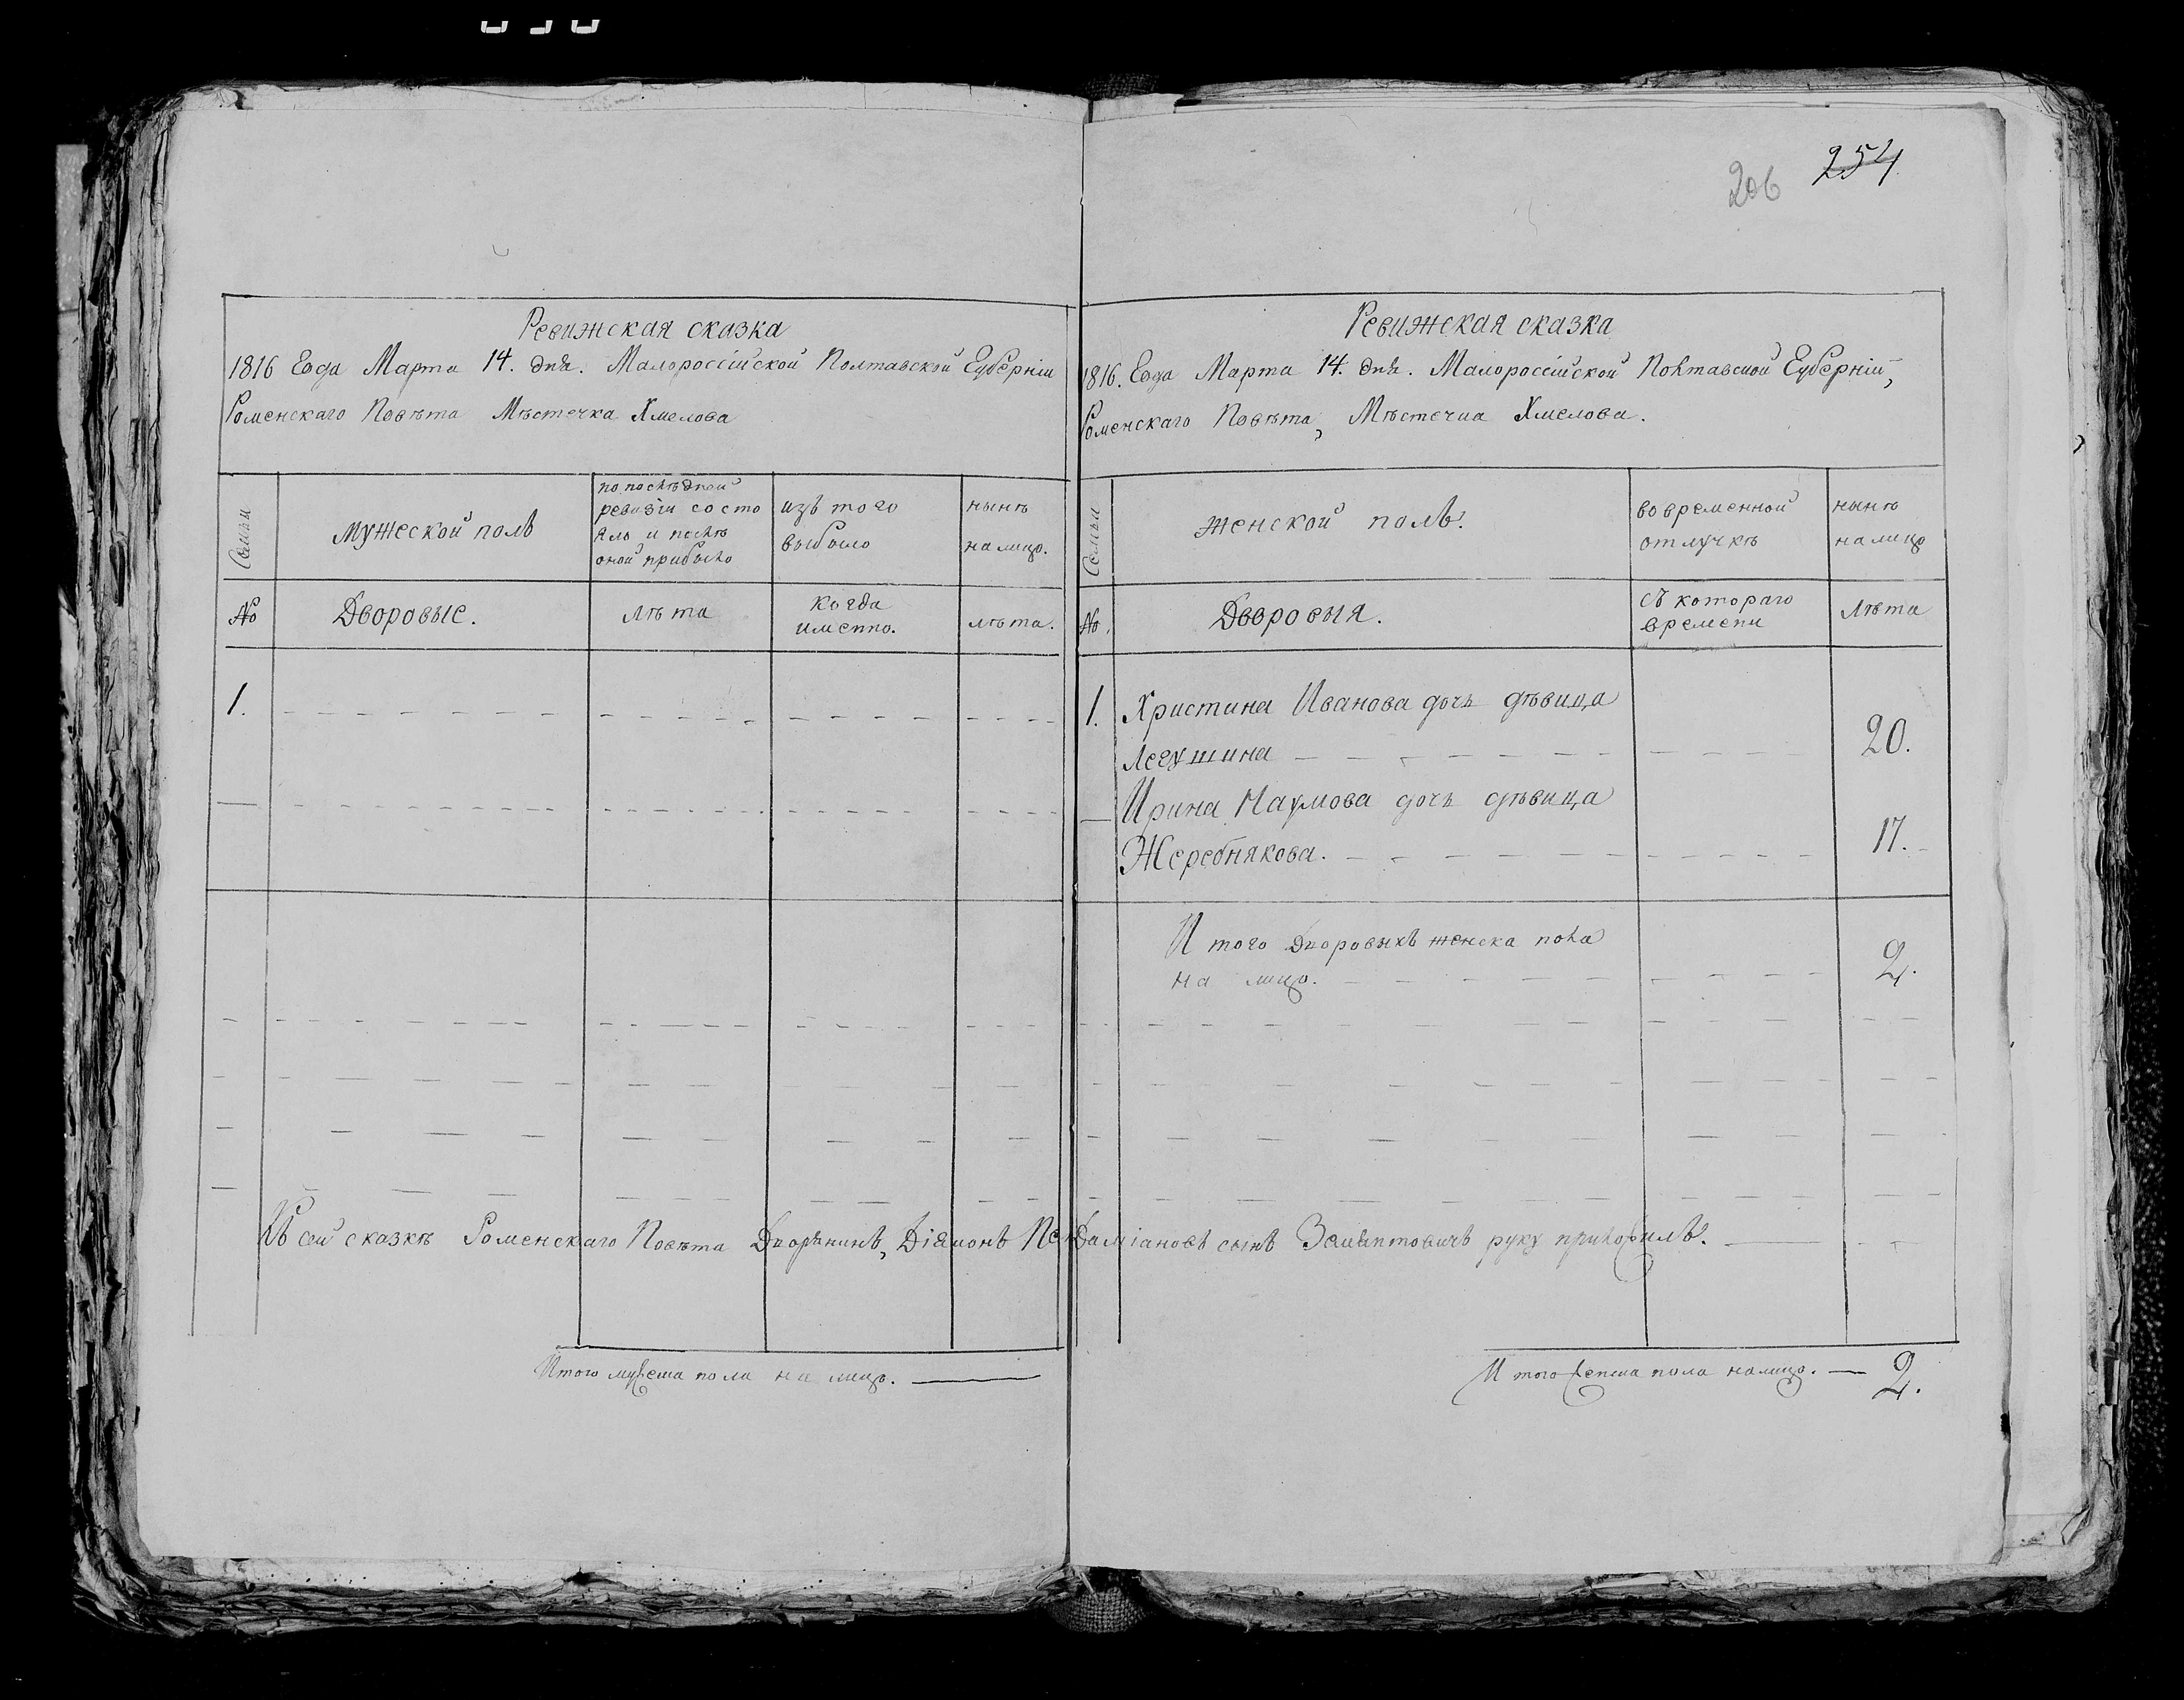 206 254
Ревижская сказка
1816 Года Марта 14. дня. Малороссійской Полтавской Губерніи
Роменскаго Повѣта Мѣстечка Хмелова
Семьи
Мужеской полъ
по послѣдней
ревизіи состо
яло и послѣ
оной прибыло
изъ того
выбыло
нынѣ
налицо.
№
Дворовые.
лѣта
когда
именно.
лѣта.
1.
Итого мужеска пола на лицо.
Ревижская сказка
1816. Года Марта 14. дня. Малороссійской Полтавской Губерніи,
Роменскаго Повѣта, Мѣстечка Хмелова.
Семьи
женской полъ.
во временной
отлучкѣ
нынѣ
налицо
№.
Дворовыя.
съ котораго
времени
Лѣта
1. Христина Иванова дочь дѣвица
20.
Ирина Наумова дочь дѣвица
Жеребнякова. 17.
Итого Дворовыхъ женска пола
на лицо. 2.
Къ сей сказкѣ Роменскаго Повѣта Дворянинъ, Даміановъ сынъ руку приложилъ.
Итого женска пола налицо. 2.